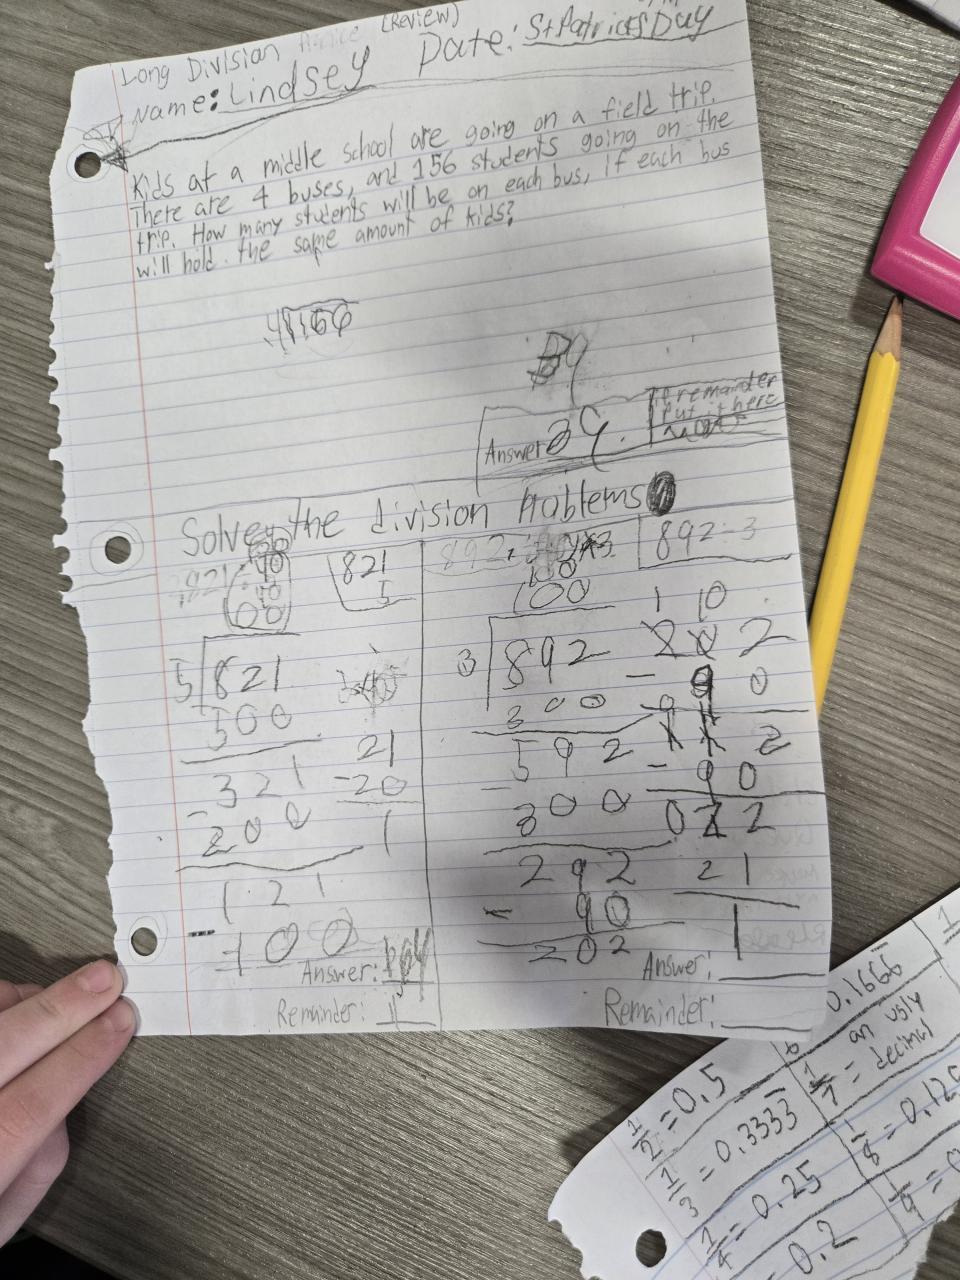 Long Division (Review)
Name: Lindsey Date: St Patricks Day
Kids at a middle school are going on a field trip.
There are 4 buses, and 156 students going on the
trip. How many students will be on each bus, if each bus
will hold the same amount of kids?
Answer 39.
remainder
put it here
Solve the division Problems
821
5
892 ÷ 3
100
5 821
500
321
- 200
121
- 100
21
- 20
1
Answer:
Remainder: 1
3 892
300
592
- 300
292
- 90
202
1 10
202
- 90
112
- 90
022
21
1
Answer:
Remainder:
1/2 = 0.5
1/3 = 0.3333
1/4 = 0.25
0.2
0.1666
1/7 = an ugly decimal
1/8 = 0.125
1/9 = 0